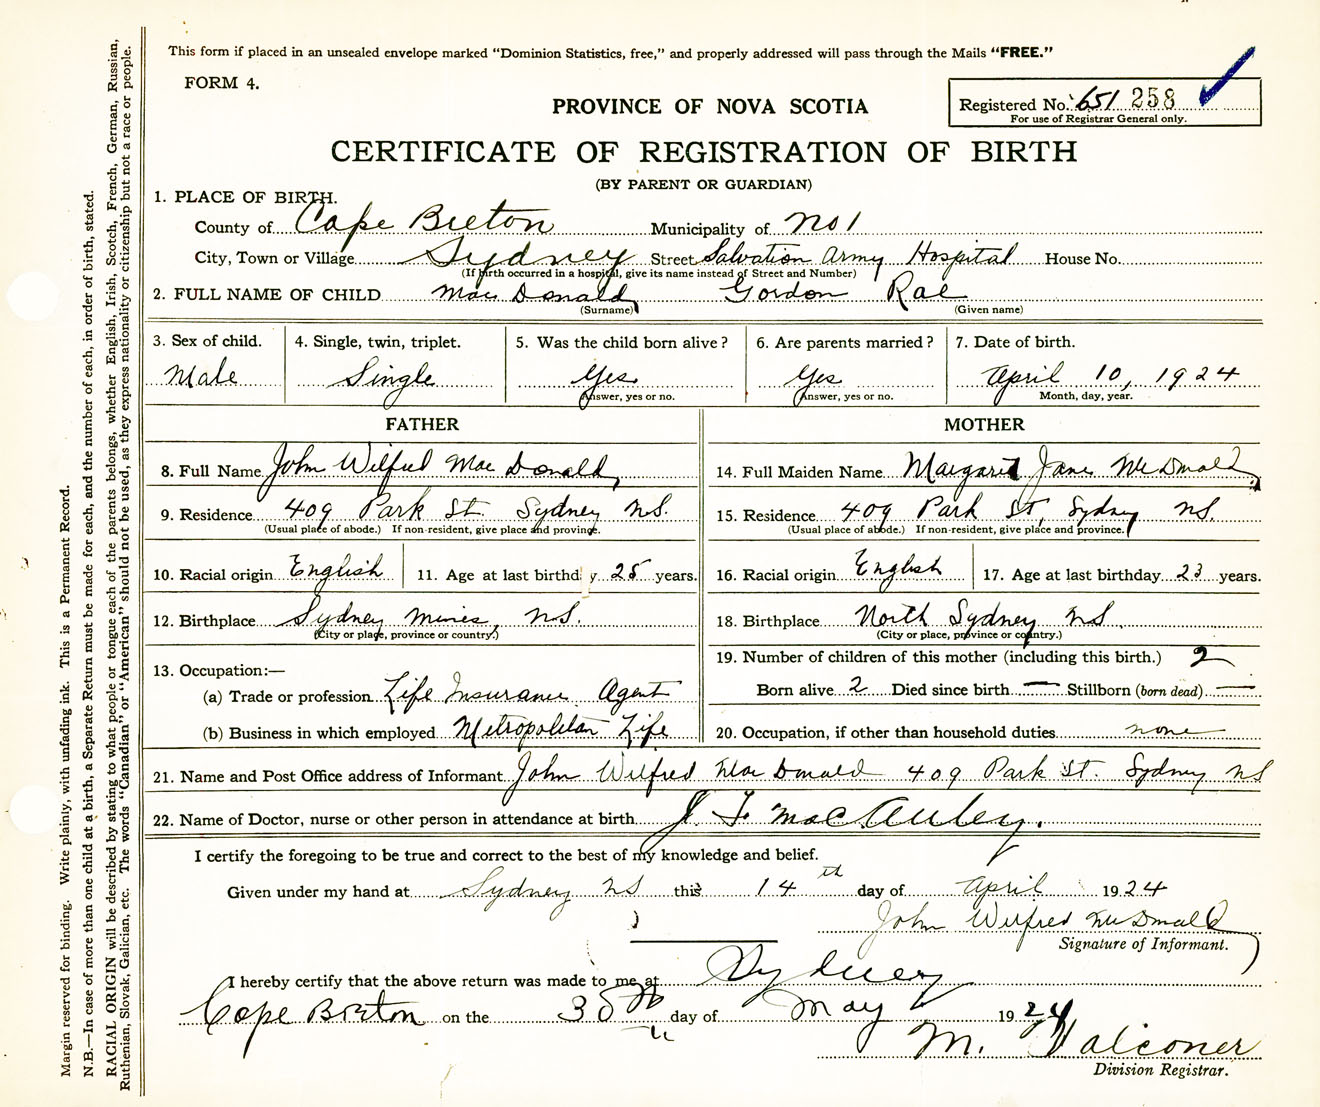 This form if placed in an unsealed envelope marked "Dominion Statistics, free," and properly addressed will pass through the Mails "FREE."
FORM 4.
PROVINCE OF NOVA SCOTIA
Registered No. 651 258
For use of Registrar General only.
CERTIFICATE OF REGISTRATION OF BIRTH
(BY PARENT OR GUARDIAN)
1. PLACE OF BIRTH.
County of Cape Breton Municipality of No 1
City, Town or Village Sydney Street Salvation Army Hospital House No.
(If birth occurred in a hospital, give its name instead of Street and Number)
2. FULL NAME OF CHILD Mac Donald Gordon Rae
(Surname) (Given name)
3. Sex of child. 4. Single, twin, triplet. 5. Was the child born alive? 6. Are parents married? 7. Date of birth.
Male Single Yes Yes April 10, 1924
Answer, yes or no. Answer, yes or no. Month, day, year.
FATHER MOTHER
8. Full Name John Wilfred Mac Donald 14. Full Maiden Name Margaret Jane McDonald
9. Residence 409 Park St. Sydney N.S. 15. Residence 409 Park St, Sydney N.S.
(Usual place of abode.) If non-resident, give place and province. (Usual place of abode.) If non-resident, give place and province.
10. Racial origin English 11. Age at last birthd y 25 years. 16. Racial origin English 17. Age at last birthday 23 years.
12. Birthplace Sydney Mines, N.S. 18. Birthplace North Sydney N.S.
(City or place, province or country.) (City or place, province or country.)
19. Number of children of this mother (including this birth.) 2
13. Occupation:—
(a) Trade or profession Life Insurance Agent Born alive 2 Died since birth — Stillborn (born dead) —
(b) Business in which employed Metropolitan Life 20. Occupation, if other than household duties none
21. Name and Post Office address of Informant John Wilfred Mac Donald 409 Park St. Sydney NS
22. Name of Doctor, nurse or other person in attendance at birth J. F. MacAuley.
I certify the foregoing to be true and correct to the best of my knowledge and belief.
Given under my hand at Sydney NS this 14th day of April 1924
John Wilfred McDonald
Signature of Informant.
I hereby certify that the above return was made to me at Sydney
Cape Breton on the day of May 1924
M. Falconer
Division Registrar.
Margin reserved for binding. Write plainly, with unfading ink. This is a Permanent Record.
N.B.—In case of more than one child at a birth, a Separate Return must be made for each, and the number of each, in order of birth, stated.
RACIAL ORIGIN will be described by stating to what people or tongue each of the parents belongs, whether English, Irish, Scotch, French, German, Russian,
Ruthenian, Slovak, Galician, etc. The words "Canadian" or "American" should not be used, as they express nationality or citizenship but not a race or people.